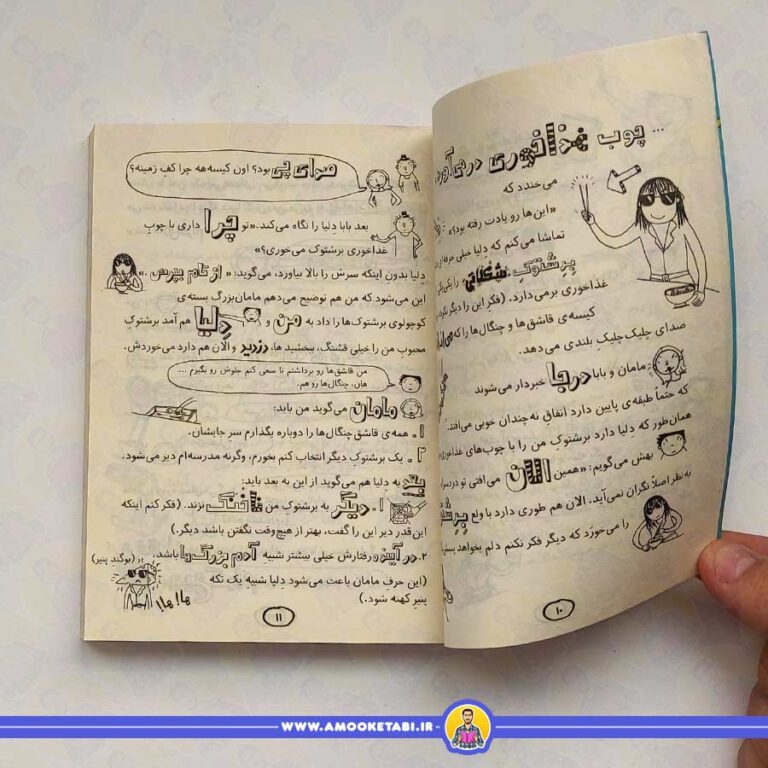 ... چوب غذاخوری درمی‌آورد
می‌خندد که
«این‌ها رو یادت رفته بود؟»
تماشا می‌کنم که دِلیا خیلی حرفه‌ای
بِرِشتوکِ شکلاتی را یکی‌یکی
غذاخوری برمی‌دارد. (فکر این را دیگر
کیسه‌ی قاشق‌ها و چنگال‌ها را که
صدای چلیک‌چلیکِ بلندی می‌دهد.
مامان و بابا درجا خبردار می‌شوند
که حتماً طبقه‌ی پایین دارد اتفاقِ نه‌چندان خوبی می‌افتد.
همان‌طور که دِلیا دارد برشتوکِ من را با چوب‌های غذاخوری
بهش می‌گویم: «همین الآن می‌افتی تو دردسر
به‌نظر اصلاً نگران نمی‌آید. الآن هم طوری دارد با ولع
را می‌خورَد که دیگر فکر نکنم دلم بخواهد
۱۰
صدای چی بود؟ اون کیسه‌هه چرا کفِ زمینه؟
بعد بابا دِلیا را نگاه می‌کند. «تو چرا داری با چوبِ
غذاخوری برشتوک می‌خوری؟»
دِلیا بدون اینکه سرش را بالا بیاورد، می‌گوید: «از تام بپرس.»
این می‌شود که من هم توضیح می‌دهم مامان‌بزرگ بسته‌ی
کوچولوی برشتوک‌ها را داد به من و دِلیا هم آمد برشتوکِ
محبوبِ من را خیلی قشنگ، ببخشید ها، دزدید و الآن هم دارد می‌خوردش.
من قاشق‌ها رو برداشتم تا سعی کنم جلوش رو بگیرم ...
هان، چنگال‌ها رو هم.
مامان می‌گوید من باید:
۱. همه‌ی قاشق چنگال‌ها را دوباره بگذارم سرِ جایشان.
۲. یک برشتوکِ دیگر انتخاب کنم بخورم، وگرنه مدرسه‌ام دیر می‌شود.
بعد به دِلیا هم می‌گوید از این به بعد باید:
۱. دیگر به برشتوکِ من ناخنک نزند. (فکر کنم اینکه
این‌قدر دیر این را گفت، بهتر از هیچ‌وقت نگفتن باشد دیگر.)
۲. در آینده رفتارش خیلی بیشتر شبیهِ آدم بزرگ‌ها باشد.
(بوگند پنیر)
(این حرفِ مامان باعث می‌شود دِلیا شبیهِ یک تکه
پنیرِ کهنه شود.)
ها! ها!
۱۱
WWW.AMOOKETABI.IR